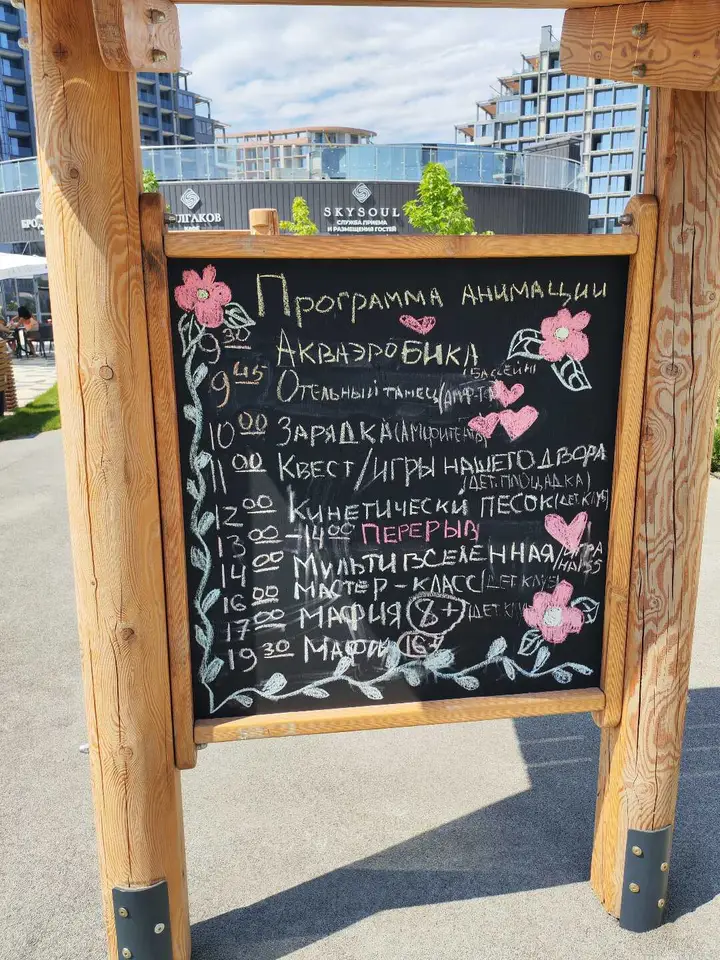 БУЛГАКОВ
SKYSOUL
СЛУЖБА ПРИЕМА
И РАЗМЕЩЕНИЯ ГОСТЕЙ
ПРОГРАММА АНИМАЦИИ
9 30 АКВАЭРОБИКА
(БАССЕЙН)
9 45 ОТЕЛЬНЫЙ ТАНЕЦ
10 00 ЗАРЯДКА
11 00 КВЕСТ/ИГРЫ НАШЕГО ДВОРА
(ДЕТ.ПЛОЩАДКА)
12 00 КИНЕТИЧЕСКИ ПЕСОК (ДЕТ.КЛУБ)
13 00 - 14 00 ПЕРЕРЫВ
14 00 МУЛЬТИВСЕЛЕННАЯ/ИГРА
16 00 МАСТЕР-КЛАСС (ДЕТ КЛУБ)
17 00 МАФИЯ (8+)
19 30 МАФИЯ 16+